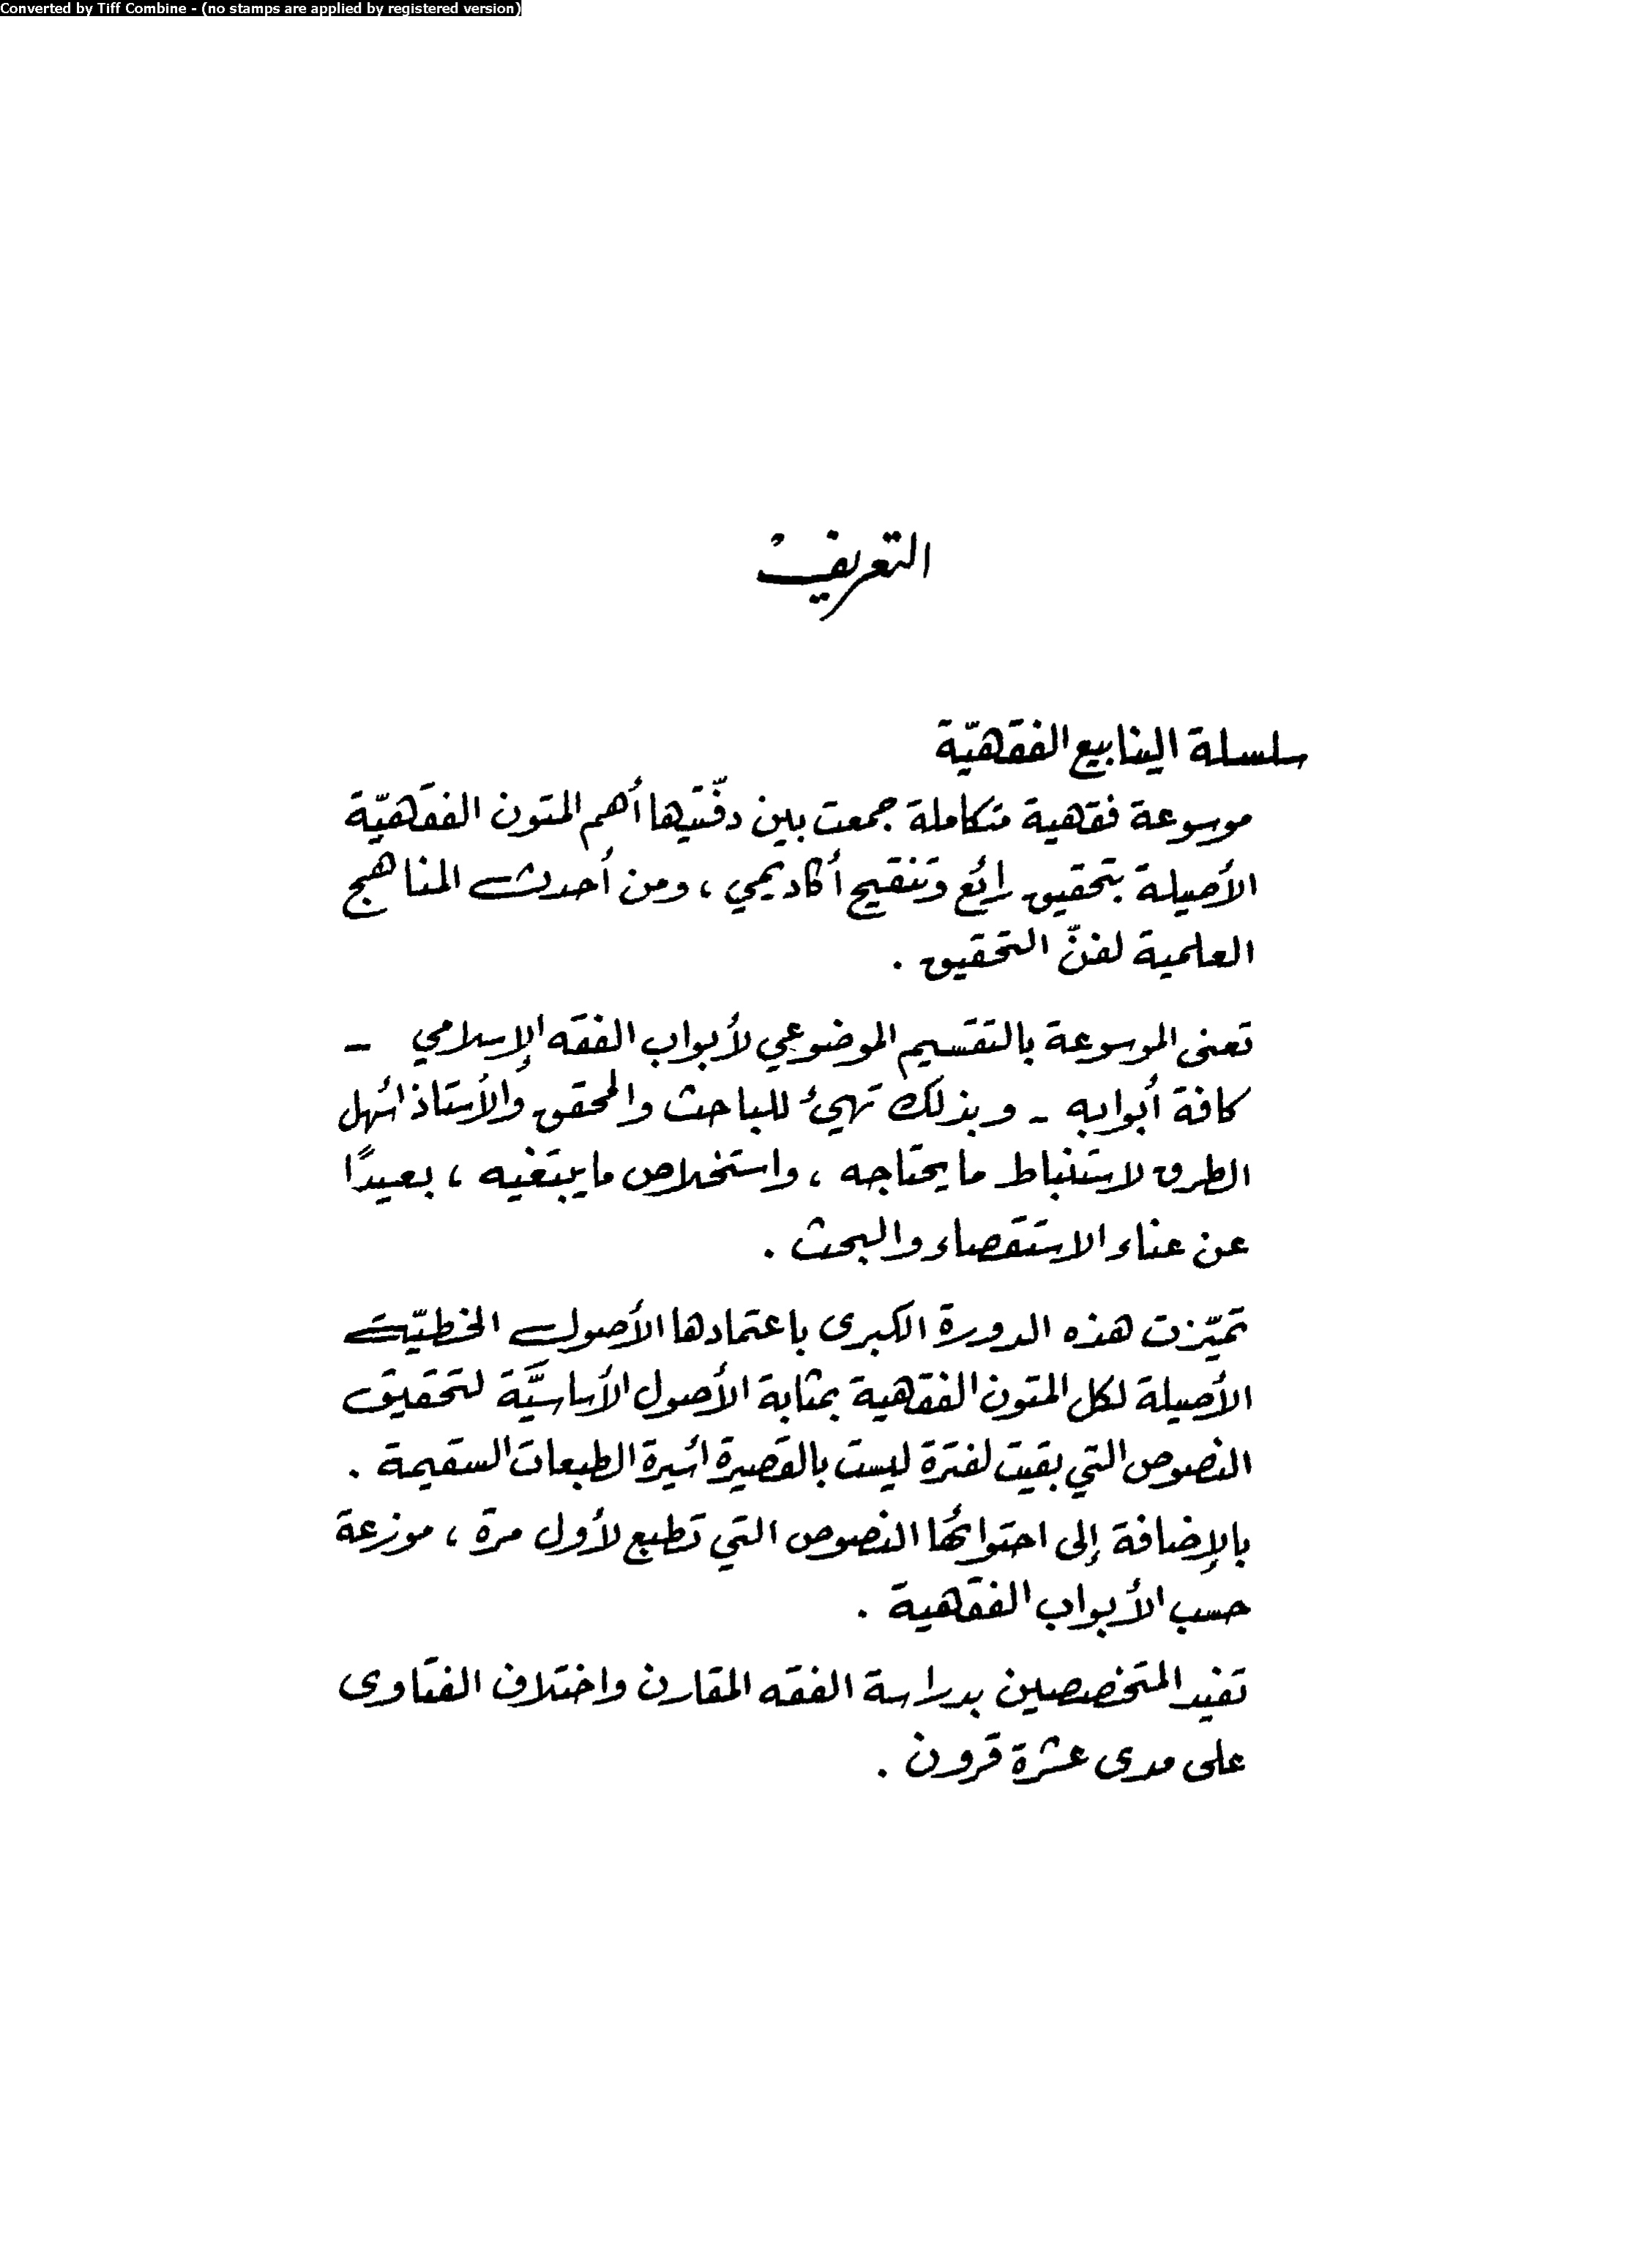 Converted by Tiff Combine - (no stamps are applied by registered version)
التعريف
سلسلة الينابيع الفقهيّة
موسوعة فقهية متكاملة جمعت بين دفّتيها أهم المتون الفقهيّة
الأصيلة بتحقيق رائع وتنقيح أكاديمي ، ومن أحدث المناهج
العلمية لفنّ التحقيق .
تعنى الموسوعة بالتقسيم الموضوعي لأبواب الفقه الإسلامي -
كافة أبوابه - وبذلك تهيئ للباحث والمحقق والأستاذ أسهل
الطرق لاستنباط ما يحتاجه ، واستخلاص ما يبتغيه ، بعيدًا
عن عناء الاستقصاء والبحث .
تميّزت هذه الدورة الكبرى باعتمادها الأصول الخطيّة
الأصيلة لكل المتون الفقهية بمثابة الأصول الأساسيَّة لتحقيق
النصوص التي بقيت لفترة ليست بالقصيرة أسيرة الطبعات السقيمة .
بالإضافة إلى احتوائها النصوص التي تطبع لأول مرة ، موزعة
حسب الأبواب الفقهية .
تفيد المتخصصين بدراسة الفقه المقارن واختلاف الفتاوى
على مدى عشرة قرون .